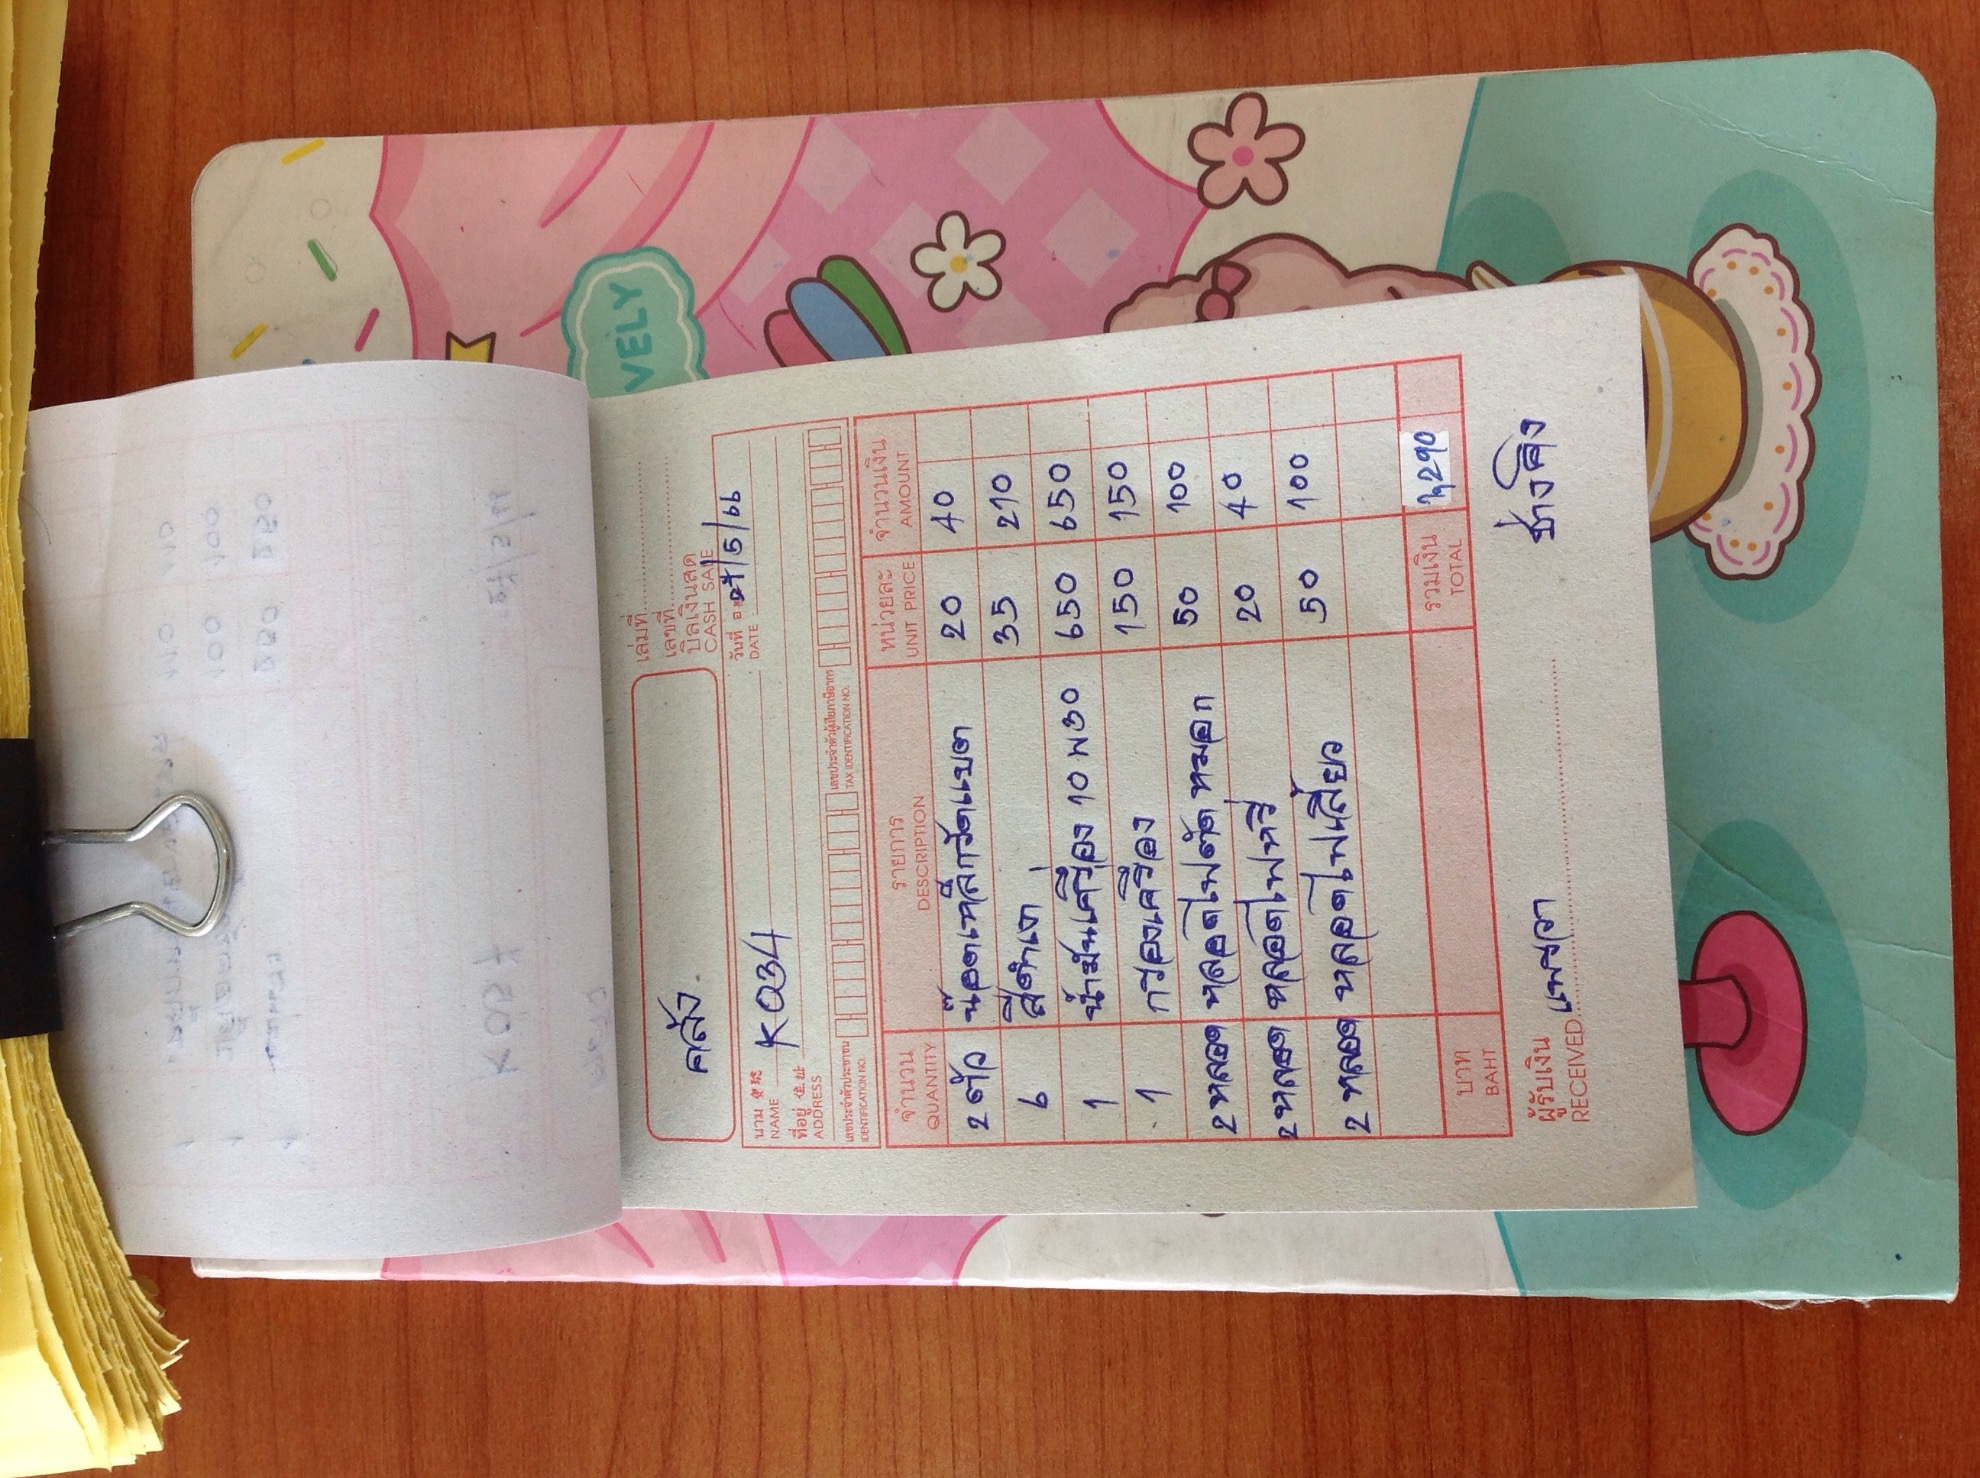 VELY
เล่มที่
เลขที่
บิลเงินสด
CASH SALE
คลัง
วันที่ 27/5/66
DATE
นาม K034
NAME
ที่อยู่
ADDRESS
เลขประจำตัวประชาชน เลขประจำตัวผู้เสียภาษีอากร
IDENTIFICATION NO. TAX IDENTIFICATION NO.
จำนวน รายการ หน่วยละ จำนวนเงิน
QUANTITY DESCRIPTION UNIT PRICE AMOUNT
2 ตัว น๊อตเหล็กรัดแบต 20 40
6 สีดำเงา 35 210
1 น้ำมันเครื่อง 10 W30 650 650
1 กรองเครื่อง 150 150
2 หลอด หลอดไฟตัดหมอก 50 100
2 หลอด หลอดไฟหรี่ 20 40
2 หลอด หลอดไฟเลี้ยว 50 100
บาท รวมเงิน 1,290
BAHT TOTAL
ผู้รับเงิน แพรวา ช่างโด่ง
RECEIVED